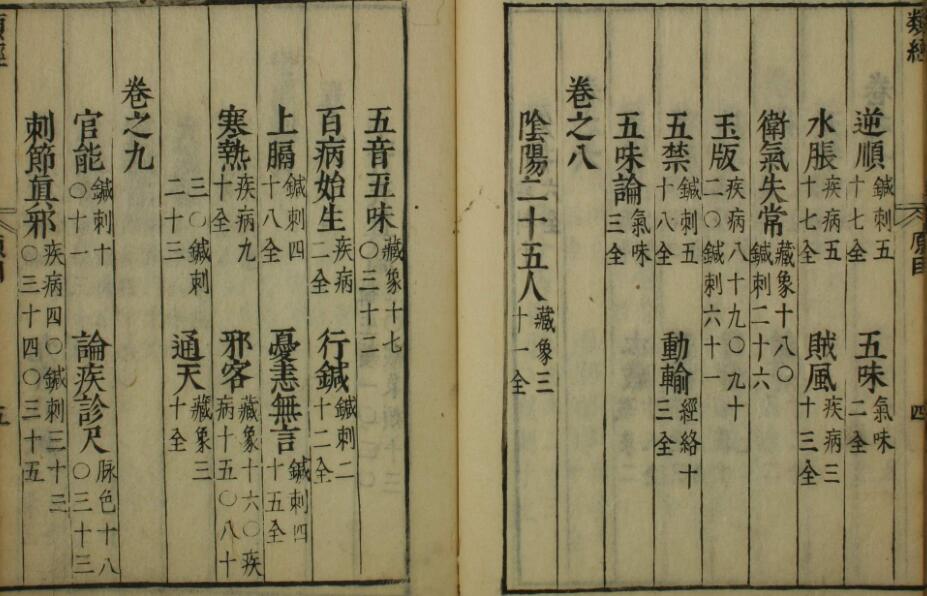 類經 原目 四
逆順 鍼刺五十七全 五味 氣味二全
水脹 疾病五十七全 賊風 疾病三十三全
衛氣失常 藏象十八〇鍼刺二十六
玉版 疾病八十九〇九十二〇鍼刺六十一
五禁 鍼刺五十八全 動輸 經絡十三全
五味論 氣味三全
卷之八
陰陽二十五人 藏象三十一全
五音五味 藏象十七〇三十二
百病始生 疾病二全 行鍼 鍼刺二十二全
上膈 鍼刺四十八全 憂恚無言 鍼刺四十五全
寒熱 疾病九十全 邪客 藏象十六〇疾病十五〇八十
三〇鍼刺二十三 通天 藏象三十全
卷之九
官能 鍼刺十〇十一 論疾診尺 脉色十八〇三十三
刺節真邪 疾病四〇鍼刺三十三〇三十四〇三十五
五